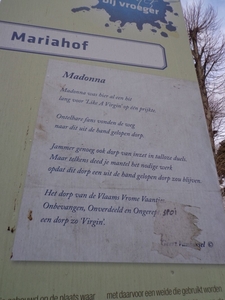 bij vroeger
Mariahof
Madonna
Madonna was hier al een hit
lang voor 'Like A Virgin' op een prijkte.
Ontelbare fans vonden de weg
naar dit uit de hand gelopen dorp.
Jammer genoeg ook dorp van twist en talloze duels.
Maar telkens deed je mantel het nodige werk
opdat dit dorp een uit de hand gelopen dorp zou blijven.
Het dorp van de Vlaams Vrome Vaantjes
Onbevangen, Onverdeeld en Ongerept
een dorp zo 'Virgin'.
met daarvoor een weide die gebruikt werden
op de plaats waar